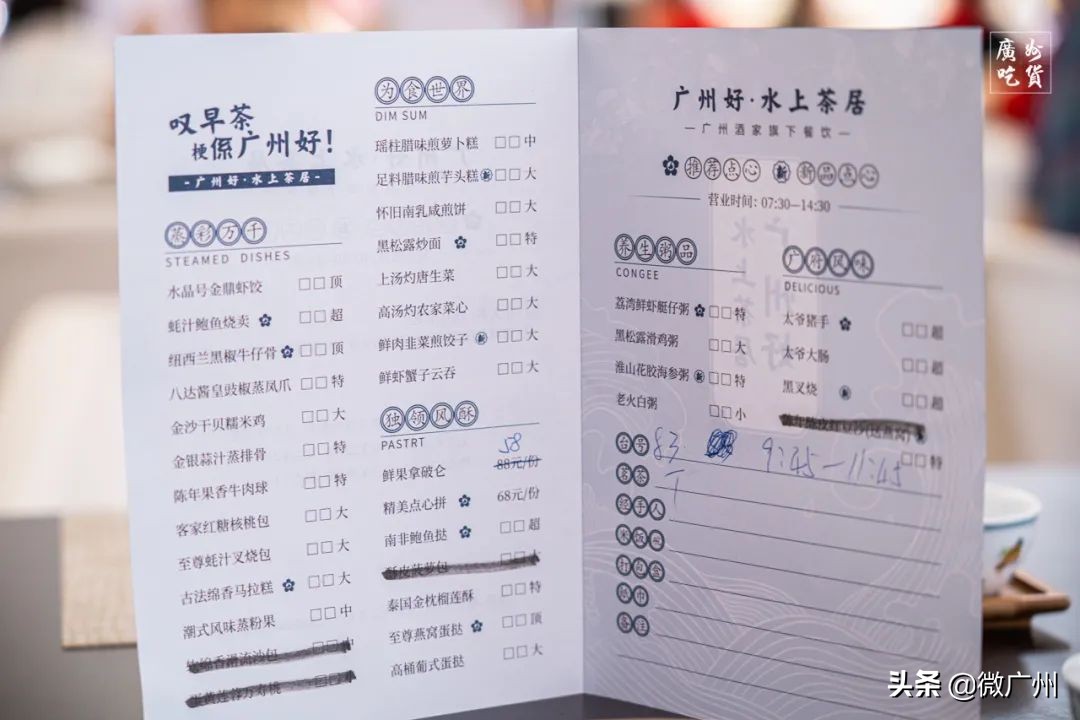 廣州
吃貨
叹早茶
梗係广州好！
-广州好·水上茶居-
蒸彩万千
STEAMED DISHES
水晶号金鼎虾饺 □□顶
蚝汁鲍鱼烧卖 □□超
纽西兰黑椒牛仔骨 □□顶
八达酱皇豉椒蒸凤爪 □□特
金沙干贝糯米鸡 □□大
金银蒜汁蒸排骨 □□特
陈年果香牛肉球 □□特
客家红糖核桃包 □□大
至尊蚝汁叉烧包 □□大
古法绵香马拉糕 □□大
潮式风味蒸粉果 □□中
绵香滑流沙包 □□中
蛋黄莲蓉万寿桃 □□小
为食世界
DIM SUM
瑶柱腊味煎萝卜糕 □□中
足料腊味煎芋头糕 新 □□大
怀旧南乳咸煎饼 □□大
黑松露炒面 □□特
上汤灼唐生菜 □□大
高汤灼农家菜心 □□大
鲜肉韭菜煎饺子 新 □□大
鲜虾蟹子云吞 □□大
独领风酥
PASTRT
58
鲜果拿破仑 88元/份
精美点心拼 68元/份
南非鲍鱼挞 □□超
酥皮菠萝包 □□大
泰国金枕榴莲酥 □□特
至尊燕窝蛋挞 □□顶
高桶葡式蛋挞 □□大
广州好·水上茶居
—广州酒家旗下餐饮—
推荐点心 新 新品点心
营业时间：07:30—14:30
养生粥品
CONGEE
荔湾鲜虾艇仔粥 □□特
黑松露滑鸡粥 □□大
淮山花胶海参粥 新 □□特
老火白粥 □□小
广府风味
DELICIOUS
太爷猪手 □□超
太爷大肠 □□超
黑叉烧 新 □□超
□□特
台号 83 9:45—11:45
茗茶
经手人
米饭
打包盒
纸巾
备注
头条 @微广州